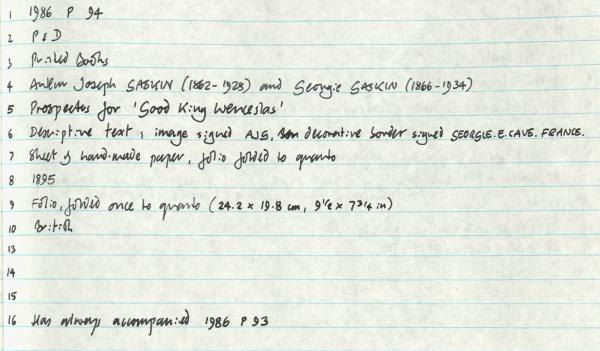 1 1986 P 94
2 P & D
3 Printed Books
4 Arthur Joseph GASKIN (1862-1928) and Georgie GASKIN (1866-1934)
5 Prospectus for 'Good King Wenceslas'
6 Descriptive text, image signed AJG, decorative border signed GEORGIE.E.CAVE.FRANCE.
7 Sheet of hand-made paper, folio folded to quarto
8 1895
9 Folio, folded once to quarto (24.2 x 19.8 cm, 9 1/2 x 7 3/4 in)
10 British
13
14
15
16 Has always accompanied 1986 P 93